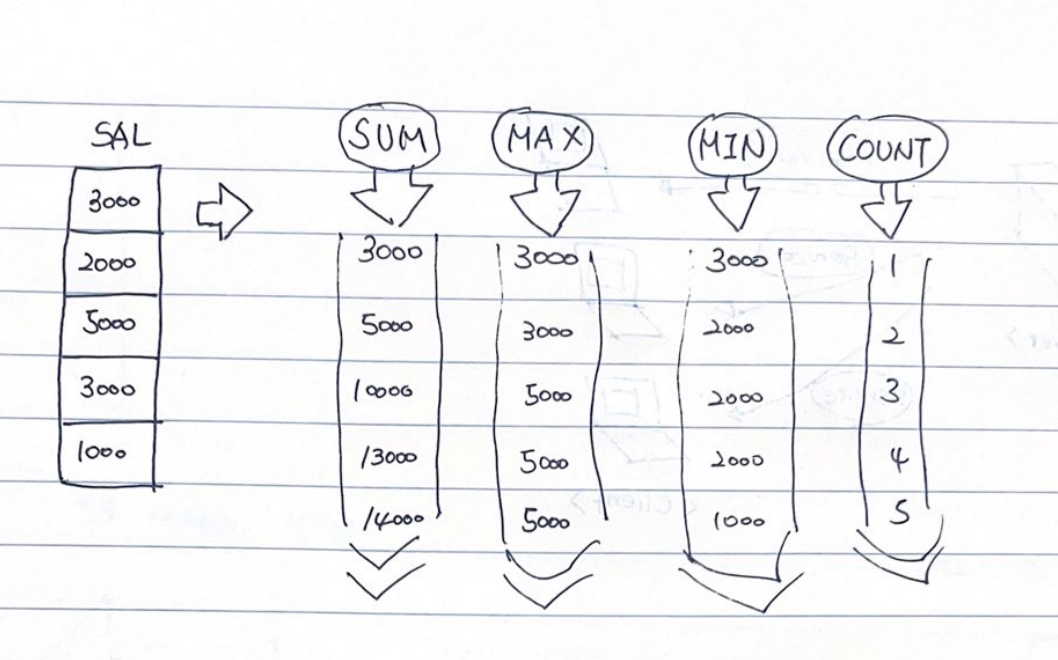 SAL SUM MAX MIN COUNT
3000 3000 3000 3000 1
2000 5000 3000 2000 2
5000 10000 5000 2000 3
3000 13000 5000 2000 4
1000 14000 5000 1000 5
<Client>